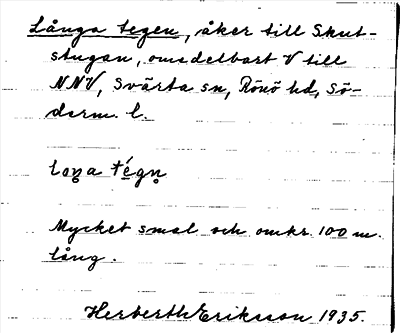 Långa tegen, åker till Skut-
stugan, omedelbart V till
NNV, Svärta sn, Rönö hd, Sö-
derm. l.
tégn
Mycket smal och omkr. 100 m.
lång.
Herberth Eriksson 1935.